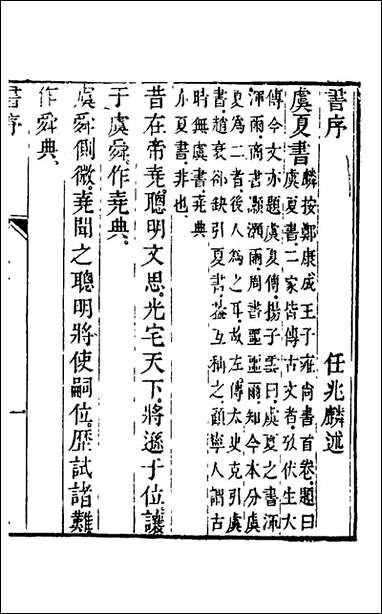 書序 任兆麟述
虞夏書 麟按鄭康成王子雍尚書首卷題曰
虞夏書二家皆傳古文者攷伏生大
傳今文亦題虞夏傳揚子雲曰虞夏之書渾
渾爾商書灝灝爾周書噩噩爾知今本分虞
夏為二者後人為之耳故左傳太史克引虞
書趙衰卻缺引夏書葢互稱之顧寧人謂古
時無虞書堯典
亦夏書非也、
昔在帝堯聰明文思。光宅天下。將遜于位讓
于虞舜。作堯典。
虞舜側微。堯聞之聰明將使嗣位。歷試諸難、
作舜典、
書序 一